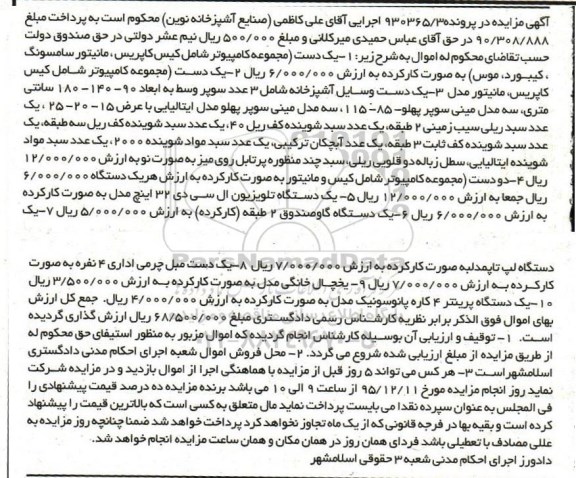 آگهی مزایده در پرونده ۹۳۰۳۶۵/۳ اجرایی آقای علی کاظمی (صنایع آشپزخانه نوین) محکوم است به پرداخت مبلغ
۹۰/۳۰۸/۸۸۸ در حق آقای عباس حمیدی میرکلائی و مبلغ ۵۰۰/۰۰۰ ریال نیم عشر دولتی در حق صندوق دولت
حسب تقاضای محکوم له اموال به شرح زیر: ۱- یک دست (مجموعه کامپیوتر شامل کیس کاپریس، مانیتور سامسونگ
، کیبورد، موس) به صورت کارکرده به ارزش ۶/۰۰۰/۰۰۰ ریال ۲- یک دست (مجموعه کامپیوتر شامل کیس
کاپریس، مانیتور مدل ۳- یک دست وسایل آشپزخانه شامل ۳ عدد سوپر وسط به ابعاد ۹۰-۱۴۰-۱۸۰ سانتی
متری، سه مدل مینی سوپر پهلو-۸۵-۱۱۵، سه مدل مینی سوپر پهلو مدل ایتالیایی با عرض ۱۵-۲۰-۲۵، یک
عدد سبد ریلی سیب زمینی ۲ طبقه، یک عدد سبد شوینده کف ریل ۴۰، یک عدد سبد شوینده کف ریل سه طبقه، یک
عدد سبد شوینده کف ثابت ۳ طبقه، یک عدد آبچکان ترکیبی، یک عدد سبد مواد شوینده ۲۰۰۰، یک عدد سبد مواد
شوینده ایتالیایی، سطل زباله دو قلویی ریلی، سبد چند منظوره پرتابل روی میز به صورت نو به ارزش ۱۲/۰۰۰/۰۰۰
ریال ۴- دو دست (مجموعه کامپیوتر شامل کیس و مانیتور به صورت کارکرده به ارزش هر یک دستگاه ۶/۰۰۰/۰۰۰
ریال جمعا به ارزش ۱۲/۰۰۰/۰۰۰ ریال ۵- یک دستگاه تلویزیون ال سی دی ۳۲ اینچ مدل به صورت کارکرده
به ارزش ۶/۰۰۰/۰۰۰ ریال ۶- یک دستگاه گاوصندوق ۲ طبقه (کارکرده) به ارزش ۵/۰۰۰/۰۰۰ ریال ۷- یک
دستگاه لپ تاپ مدل به صورت کارکرده به ارزش ۷/۰۰۰/۰۰۰ ریال ۸- یک دست مبل چرمی اداری ۴ نفره به صورت
کارکرده به ارزش ۷/۰۰۰/۰۰۰ ریال ۹- یخچال خانگی مدل به صورت کارکرده به ارزش ۳/۵۰۰/۰۰۰ ریال
۱۰- یک دستگاه پرینتر ۴ کاره پانوسونیک مدل به صورت کارکرده به ارزش ۴/۰۰۰/۰۰۰ ریال. جمع کل ارزش
بهای اموال فوق الذکر برابر نظریه کارشناس رسمی دادگستری مبلغ ۶۸/۵۰۰/۰۰۰ ریال ارزش گذاری گردیده
است. ۱- توقیف و ارزیابی آن بوسیله کارشناس انجام گردید که اموال مزبور به منظور استیفای حق محکوم له
از طریق مزایده از مبلغ ارزیابی شده شروع می گردد. ۲- محل فروش اموال شعبه اجرای احکام مدنی دادگستری
اسلامشهر است ۳- هر کس می تواند ۵ روز قبل از مزایده با هماهنگی اجرا از اموال بازدید و در مزایده شرکت
نماید روز انجام مزایده مورخ ۹۵/۱۲/۱۱ از ساعت ۹ الی ۱۰ می باشد برنده مزایده ده درصد قیمت پیشنهادی را
فی المجلس به عنوان سپرده نقدا می بایست پرداخت نماید مال متعلق به کسی است که بالاترین قیمت را پیشنهاد
کرده است و بقیه بها در فرجه قانونی که از یک ماه تجاوز نخواهد کرد پرداخت خواهد شد ضمنا چنانچه روز مزایده به
عللی مصادف با تعطیلی باشد فردای همان روز در همان مکان و همان ساعت مزایده انجام خواهد شد.
دادورز اجرای احکام مدنی شعبه ۳ حقوقی اسلامشهر